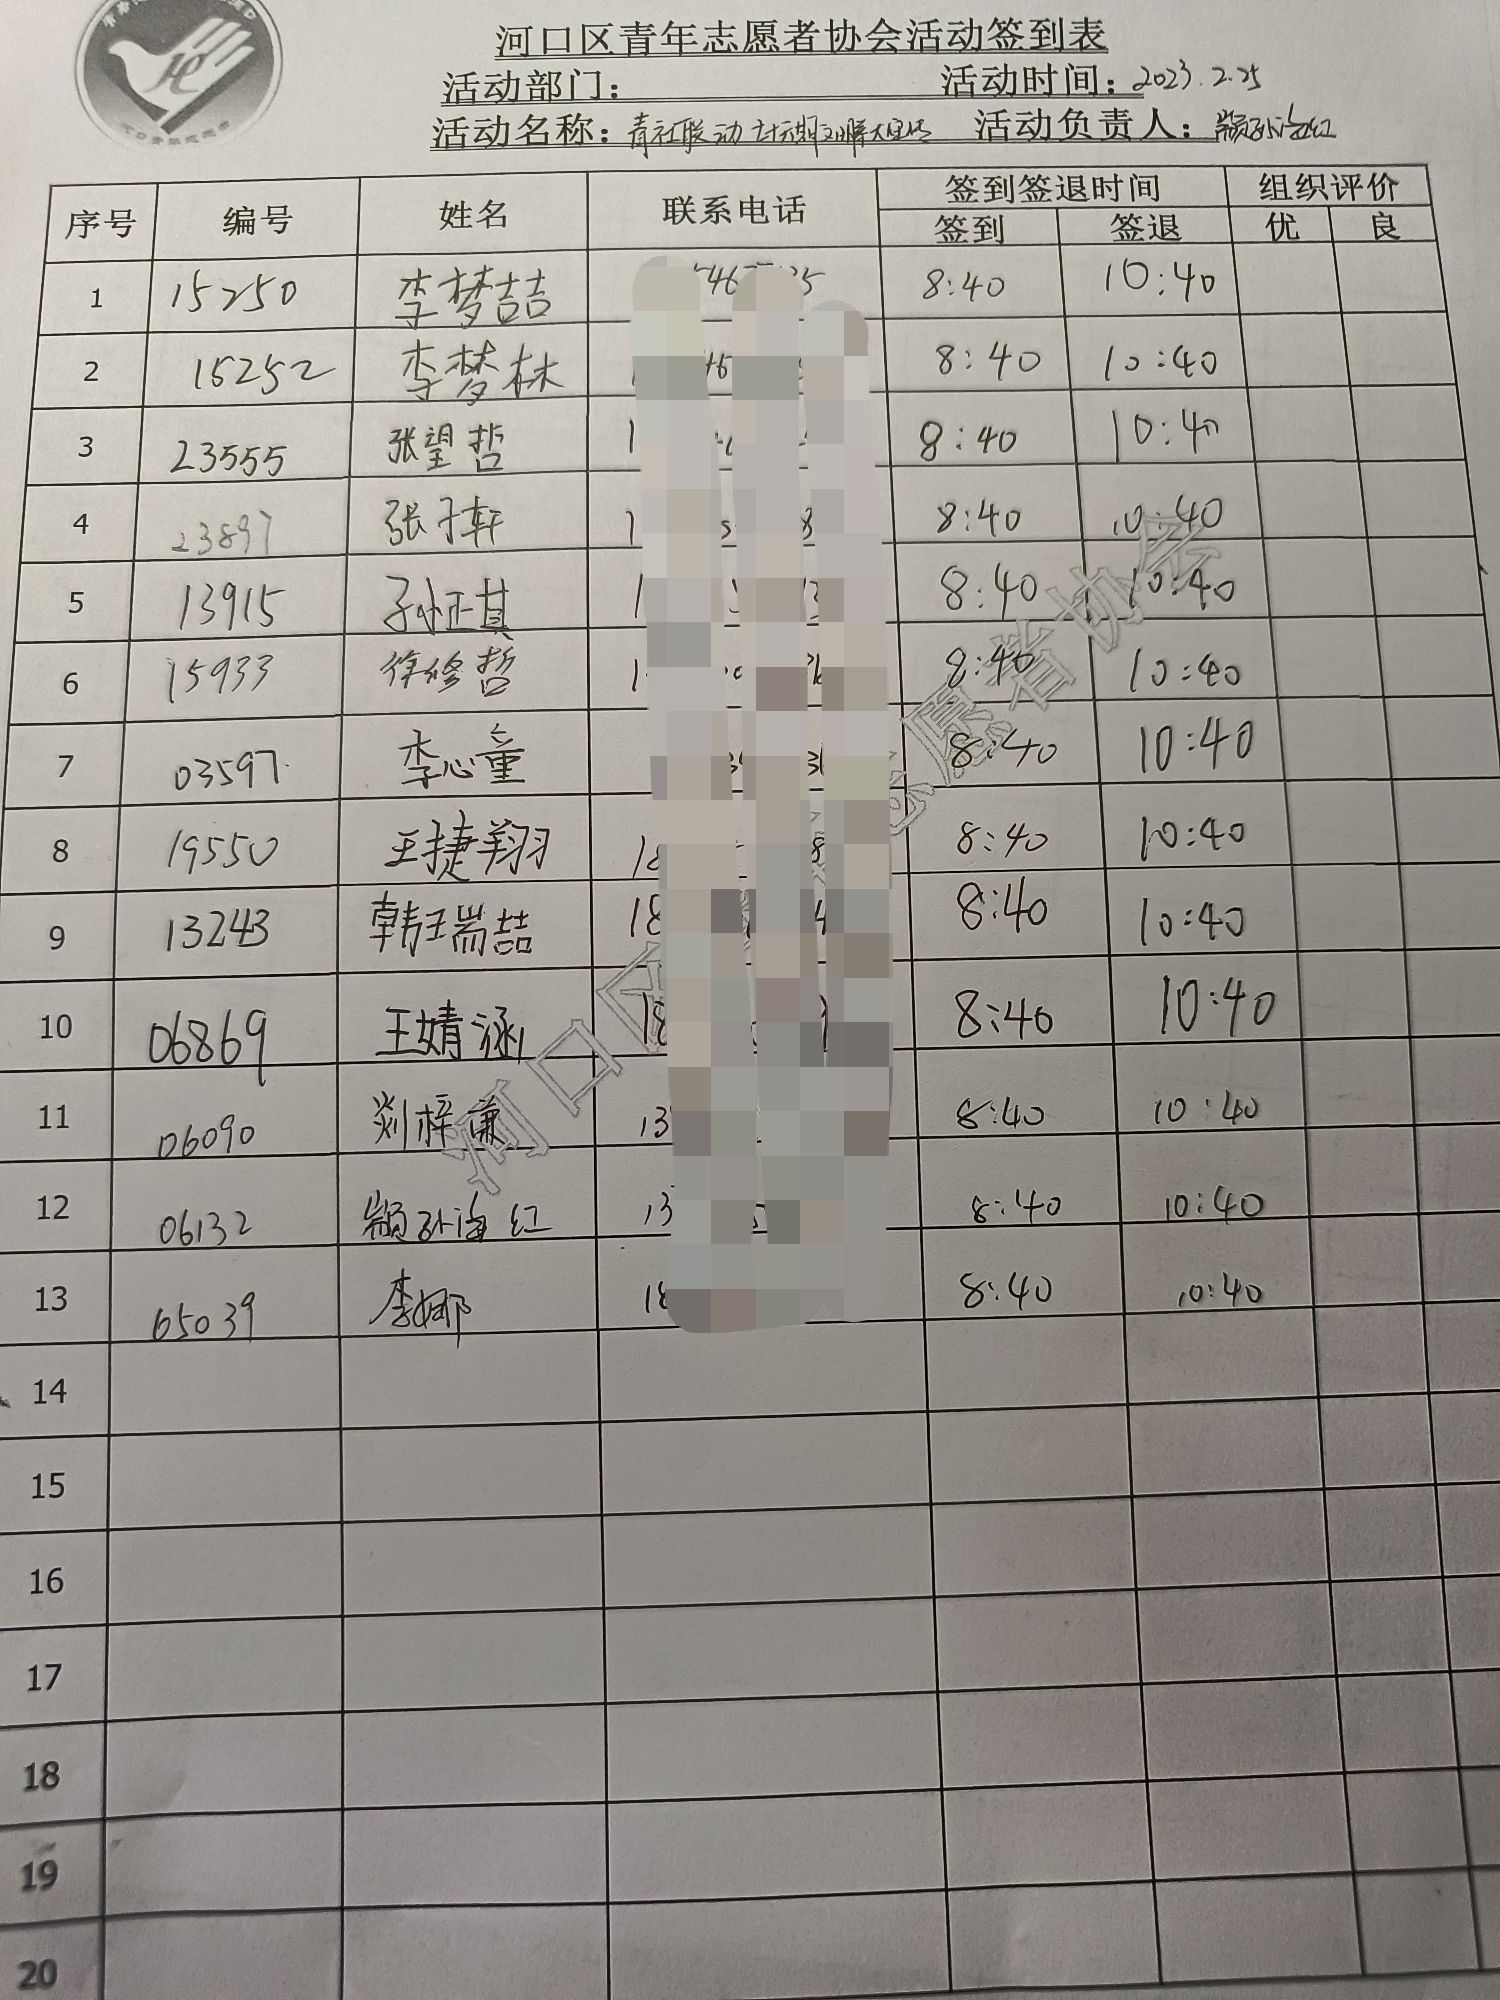 河口区青年志愿者协会活动签到表
活动部门： 活动时间：2023.2.25
活动名称：青社联动 活动负责人：颛孙海红
序号 编号 姓名 联系电话 签到签退时间 组织评价
签到 签退 优 良
1 15250 李梦喆 8:40 10:40
2 15252 李梦林 8:40 10:40
3 23555 张望哲 8:40 10:40
4 23897 张子轩 8:40 10:40
5 13915 孙正其 8:40 10:40
6 15933 徐修哲 8:40 10:40
7 03597 李心童 8:40 10:40
8 19550 王捷翔 18 8:40 10:40
9 13243 韩瑞喆 18 8:40 10:40
10 06869 王婧涵 18 8:40 10:40
11 06090 刘梓谦 13 8:40 10:40
12 06132 颛孙海红 13 8:40 10:40
13 65039 李娜 18 8:40 10:40
14
15
16
17
18
19
20
河口区 志愿者协会